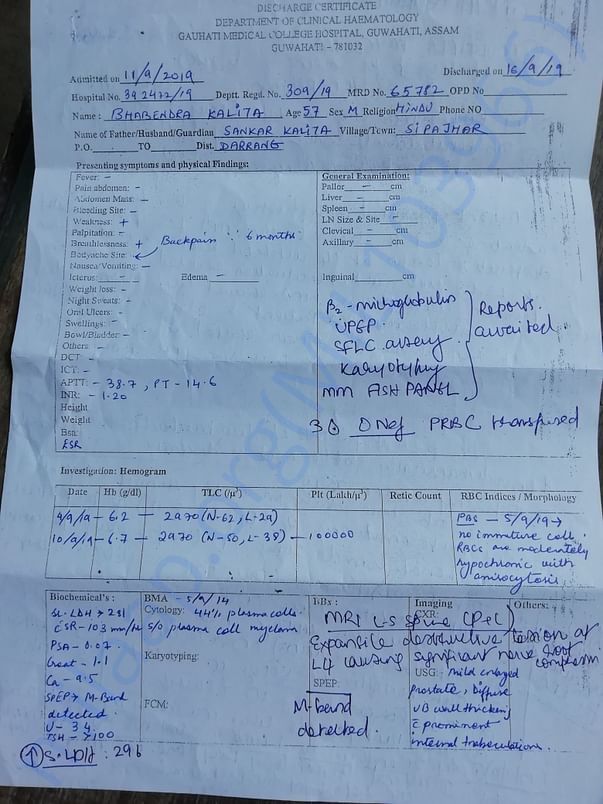 DISCHARGE CERTIFICATE
DEPARTMENT OF CLINICAL HAEMATOLOGY
GAUHATI MEDICAL COLLEGE HOSPITAL, GUWAHATI, ASSAM
GUWAHATI - 781032
Admitted on 11/9/2019 Discharged on 16/9/19
Hospital No. 392472/19 Deptt. Regd. No. 309/19 MRD No. 65782 OPD No
Name : BHABENDRA KALITA Age 57 Sex M Religion HINDU Phone NO
Name of Father/Husband/Guardian SANKAR KALITA Village/Town: SIPAJHAR
P.O. TO Dist. DARRANG
Presenting symptoms and physical Findings:
Fever: -
Pain abdomen: -
Abdomen Mass: -
Bleeding Site: -
Weakness: +
Palpitation: -
Breathlessness: +
Bodyache Site: Backpain 6 months
Nausea/Vomiting: -
Icterus: - Edema -
Weight loss: -
Night Sweats: -
Oral Ulcers: -
Swellings: -
Bowl/Bladder: -
Others -
DCT: -
ICT: -
APTT: - 38.7, PT - 14.6
INR: - 1.20
Height
Weight
Bsa:
ESR
General Examination:
Pallor - cm
Liver - cm
Spleen - cm
LN Size & Site
Clevical - cm
Axillary - cm
Inguinal cm
β2 - microglobulin
UPEP
SFLC assay
Karyotyping
MM FISH PANEL
Reports awaited
PRBC transfused
Investigation: Hemogram
Date Hb (g/dl) TLC (/μ³) Plt (Lakh/μ³) Retic Count RBC Indices / Morphology
9/9/19 - 6.2 - 2970 (N-62, L-29)
10/9/19 - 6.7 - 2970 (N-50, L-38) - 100000
PBS - 5/9/19 →
no immature cell.
RBCs are moderately
hypochromic with
anisocytosis.
Biochemical's :
Sr. LDH > 251
ESR - 103 mm/hr
PSA - 0.07
Creat - 1.1
Ca - 9.5
SPEP > M-Band
detected.
U - 34
↑ S. LDH : 296
BMA - 5/9/19
Cytology: 44% plasma cells
S/o plasma cell myeloma
Karyotyping:
FCM:
BBx:
MRI L-S Spine (P+C)
Expansile destructive lesion at
L4 causing significant nerve root
compression
SPEP:
M-band
detected.
Imaging
CXR:
USG: mild enlarged
prostate, diffuse
UB wall thickening
c prominent
internal trabeculations.
Others: